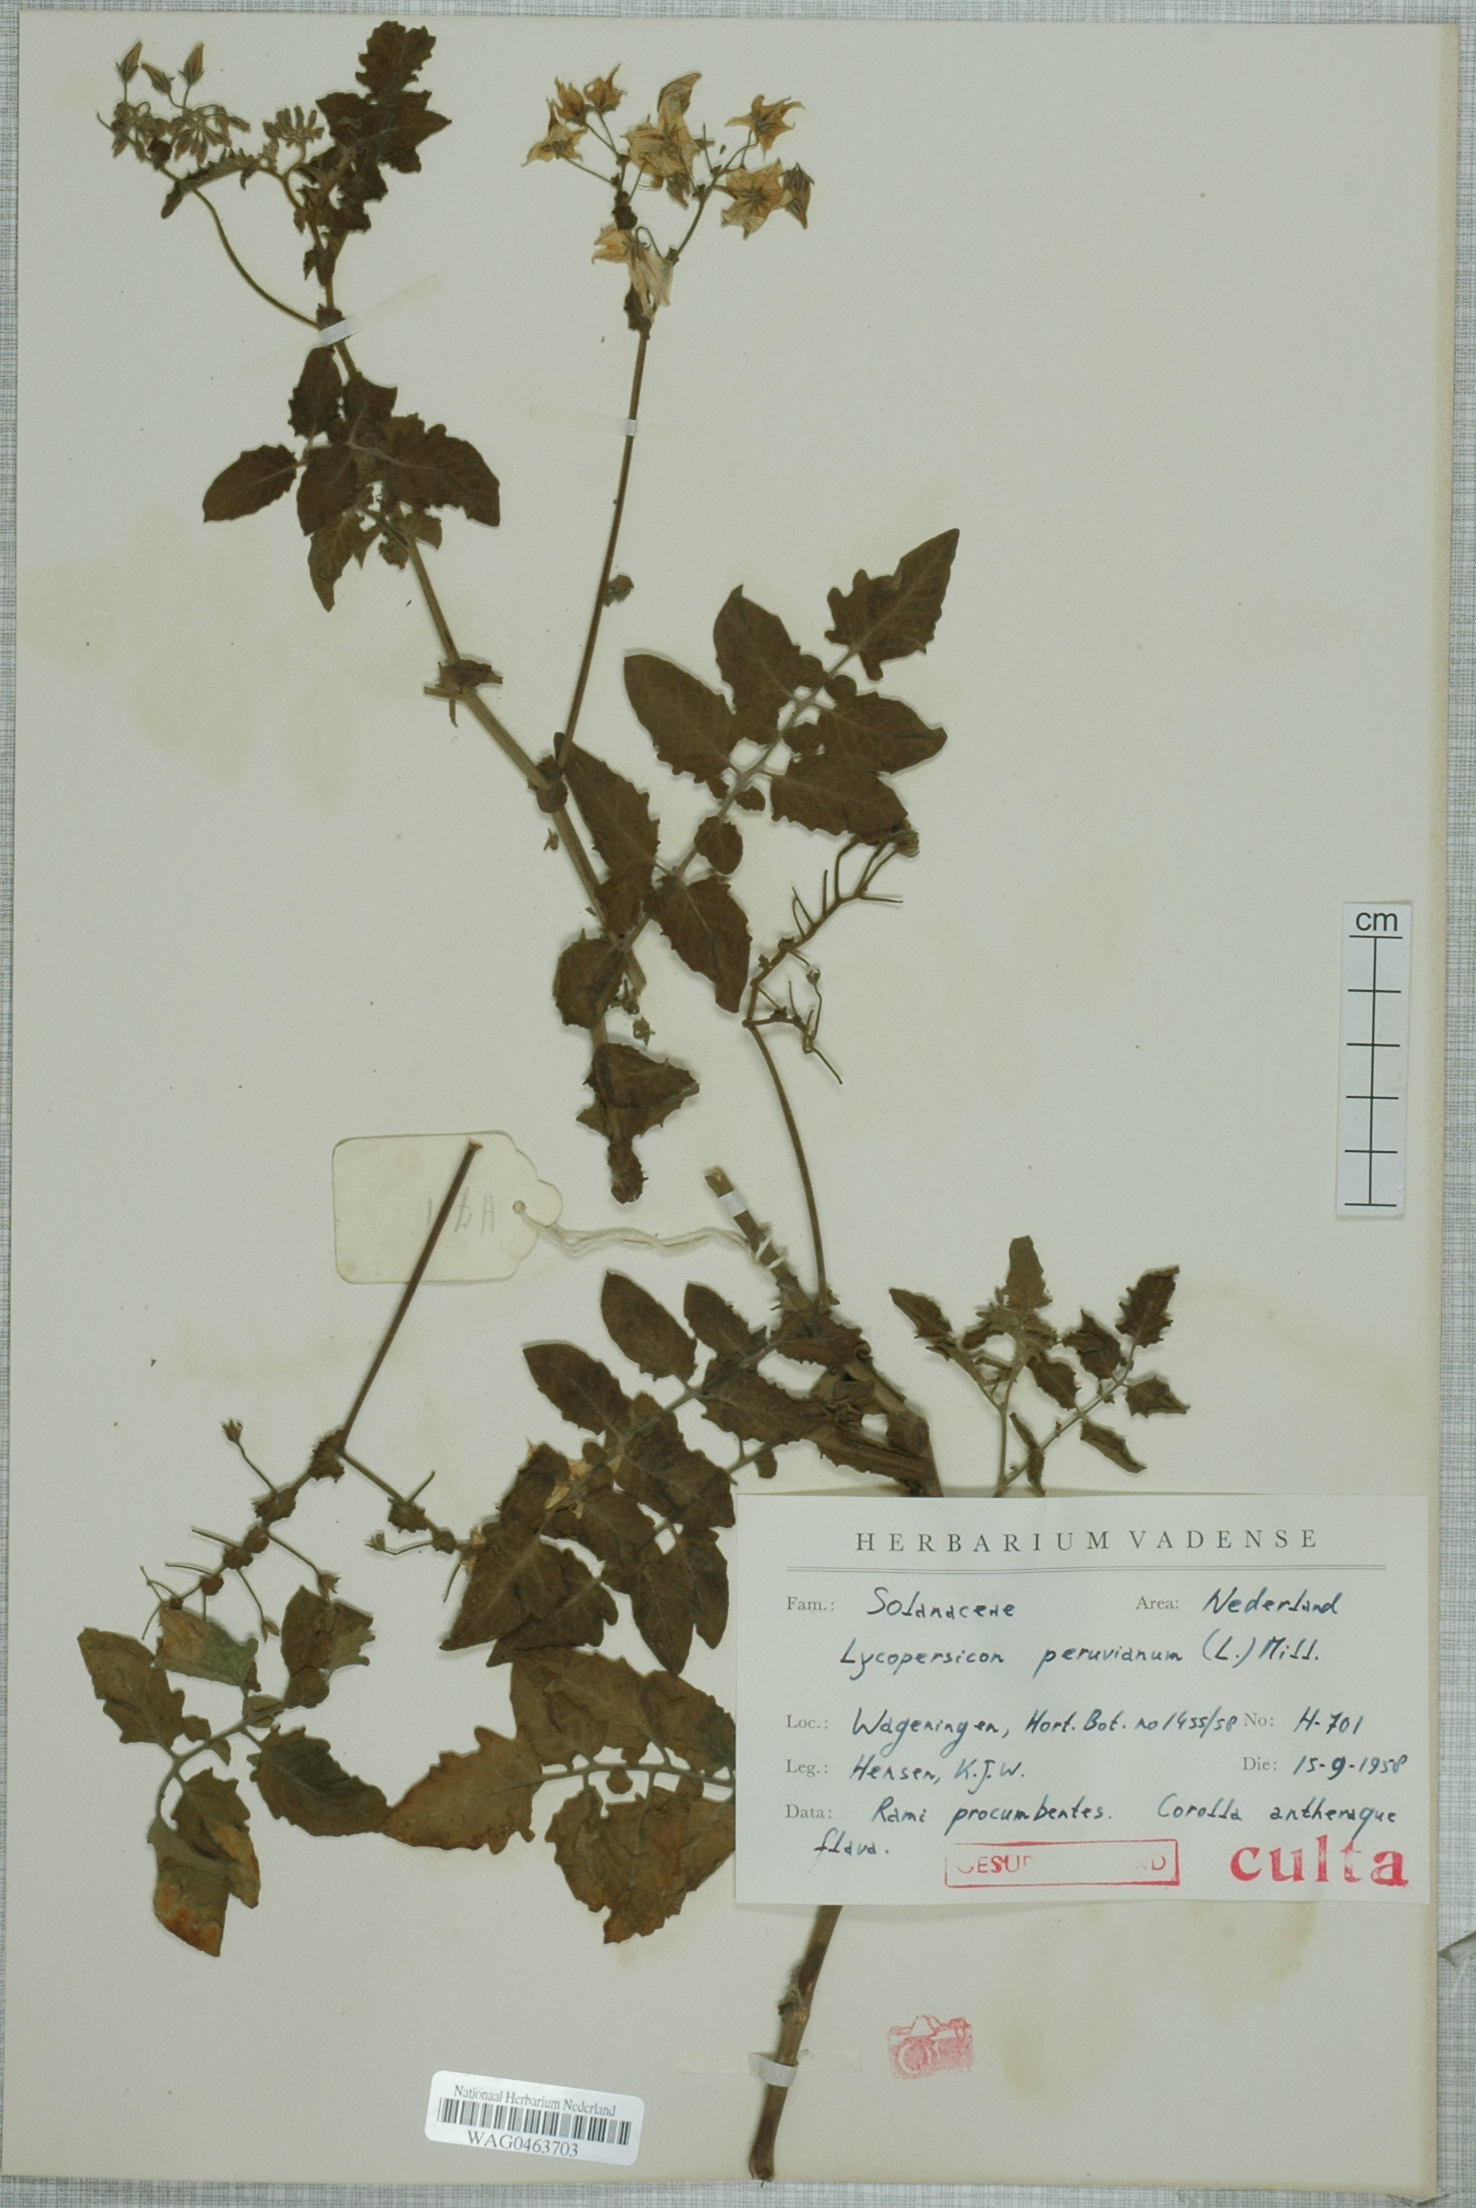 cm
H 701
HERBARIUM VADENSE
Fam.: Solanaceae Area: Nederland
Lycopersicon peruvianum (L.) Mill.
Loc.: Wageningen, Hort. Bot. no 1455/58 No: H-701
Leg.: Hensen, K.J.W. Die: 15-9-1958
Data: Rami procumbentes. Corolla antheraque
flava.
culta
Nationaal Herbarium Nederland
WAG0463703